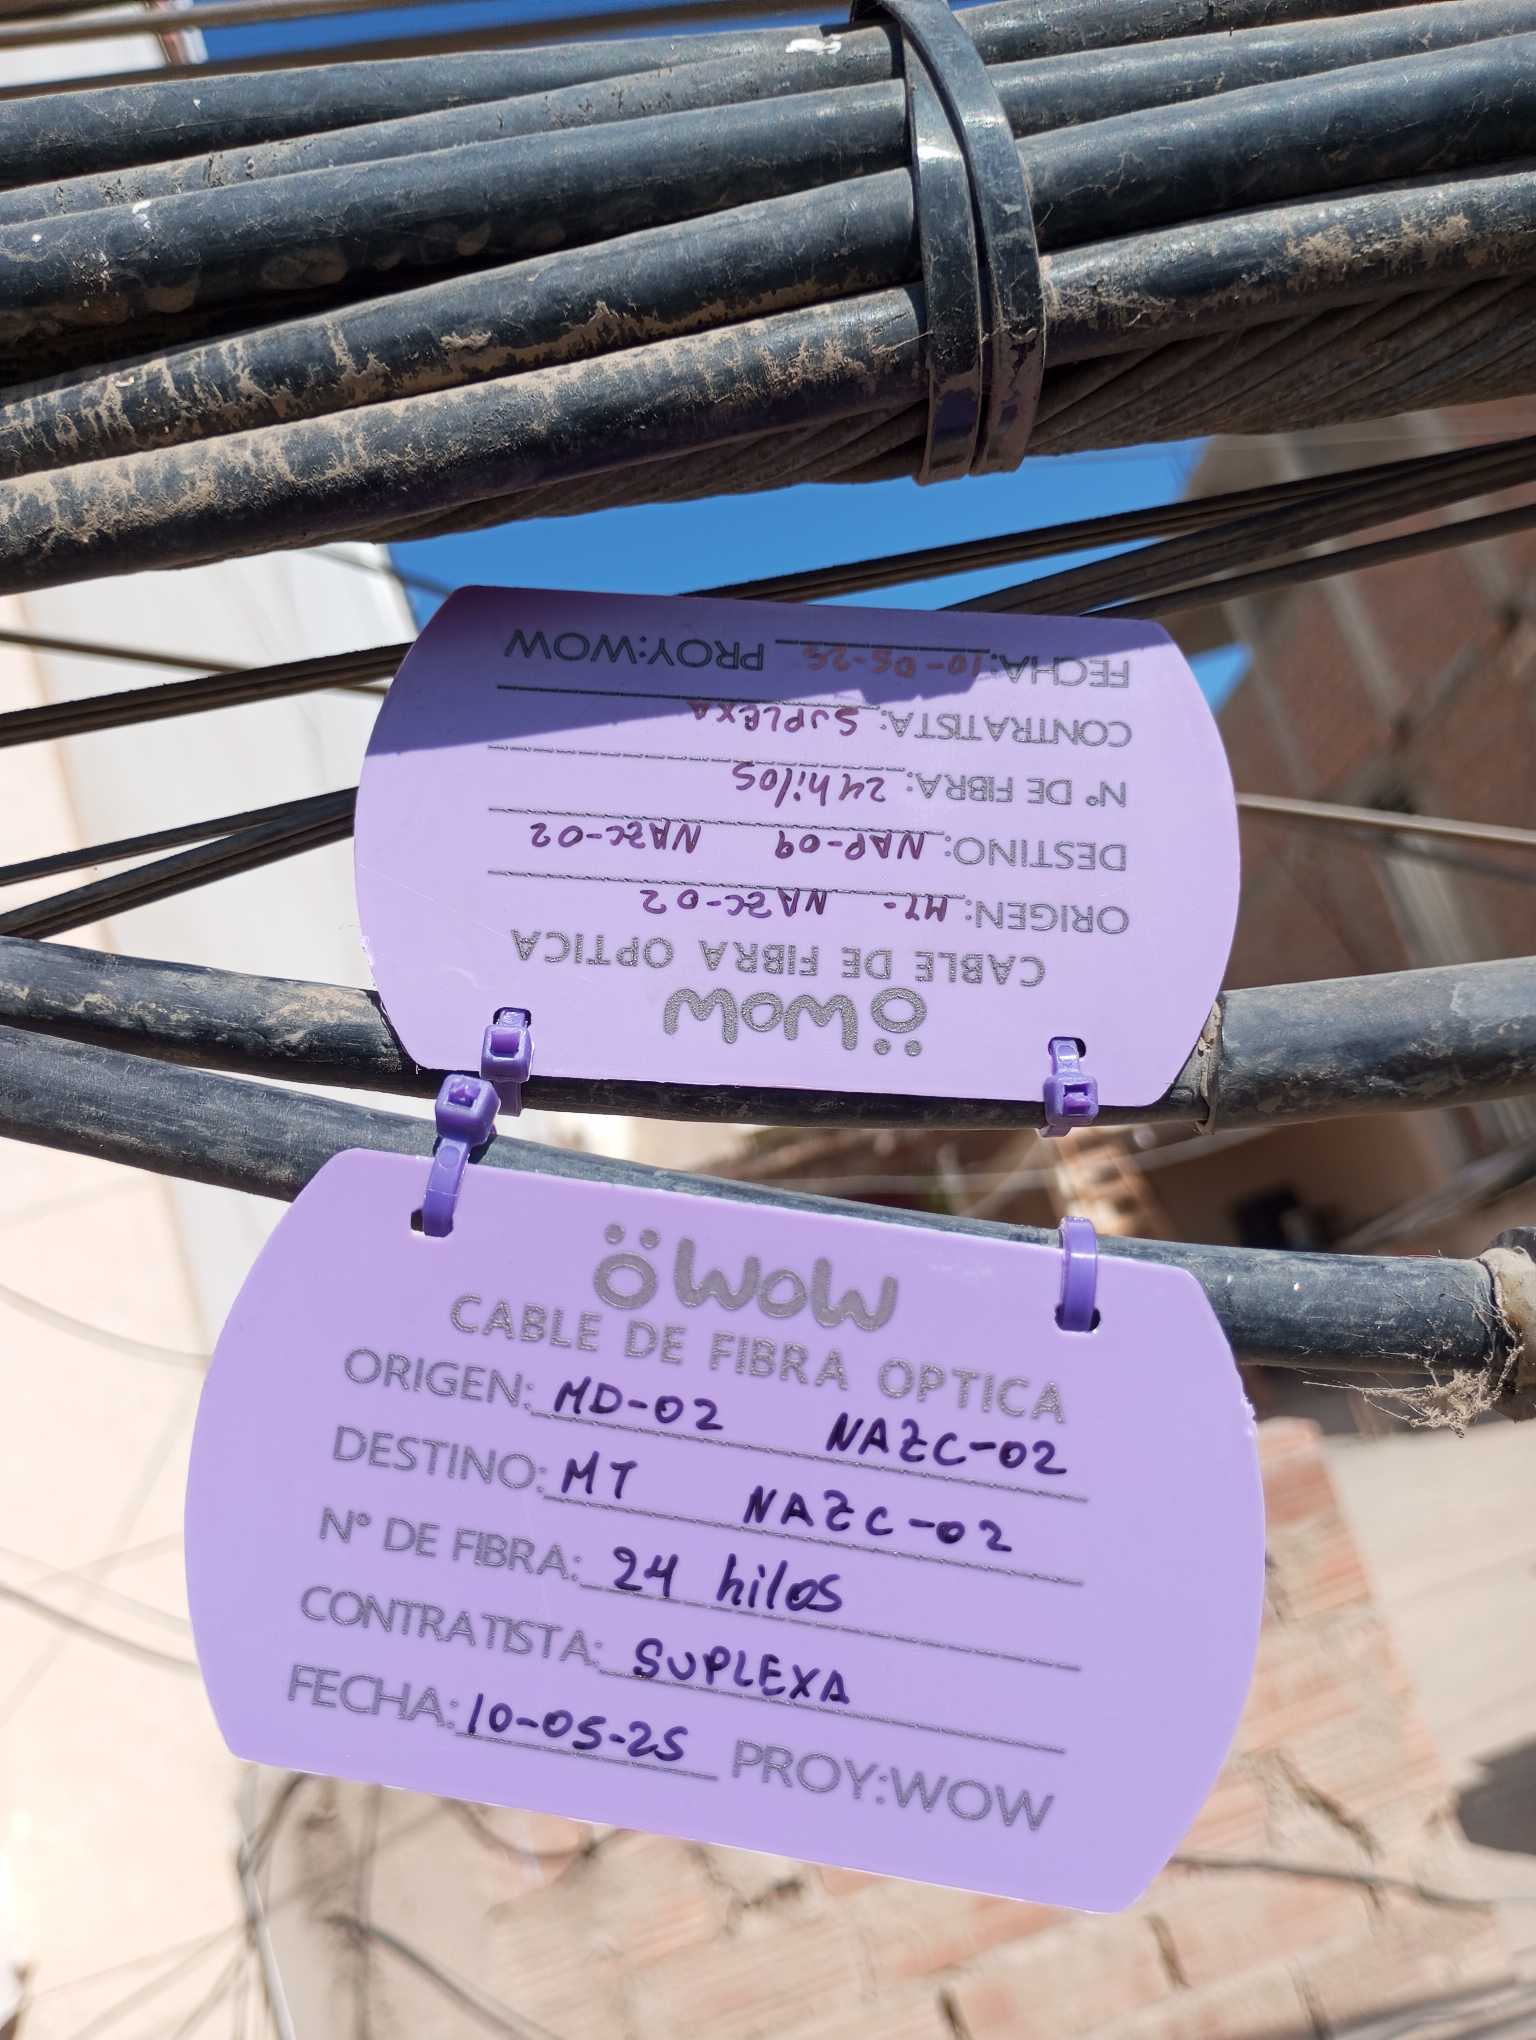 FECHA: 10-05-25 PROY:WOW
CONTRATISTA: SUPLEXA
N° DE FIBRA: 24 hilos
DESTINO: NAP-09 NAZC-02
ORIGEN: MT- NAZC-02
CABLE DE FIBRA OPTICA
WOW
WOW
CABLE DE FIBRA OPTICA
ORIGEN: MD-02 NAZC-02
DESTINO: MT NAZC-02
N° DE FIBRA: 24 hilos
CONTRATISTA: SUPLEXA
FECHA: 10-05-25 PROY:WOW